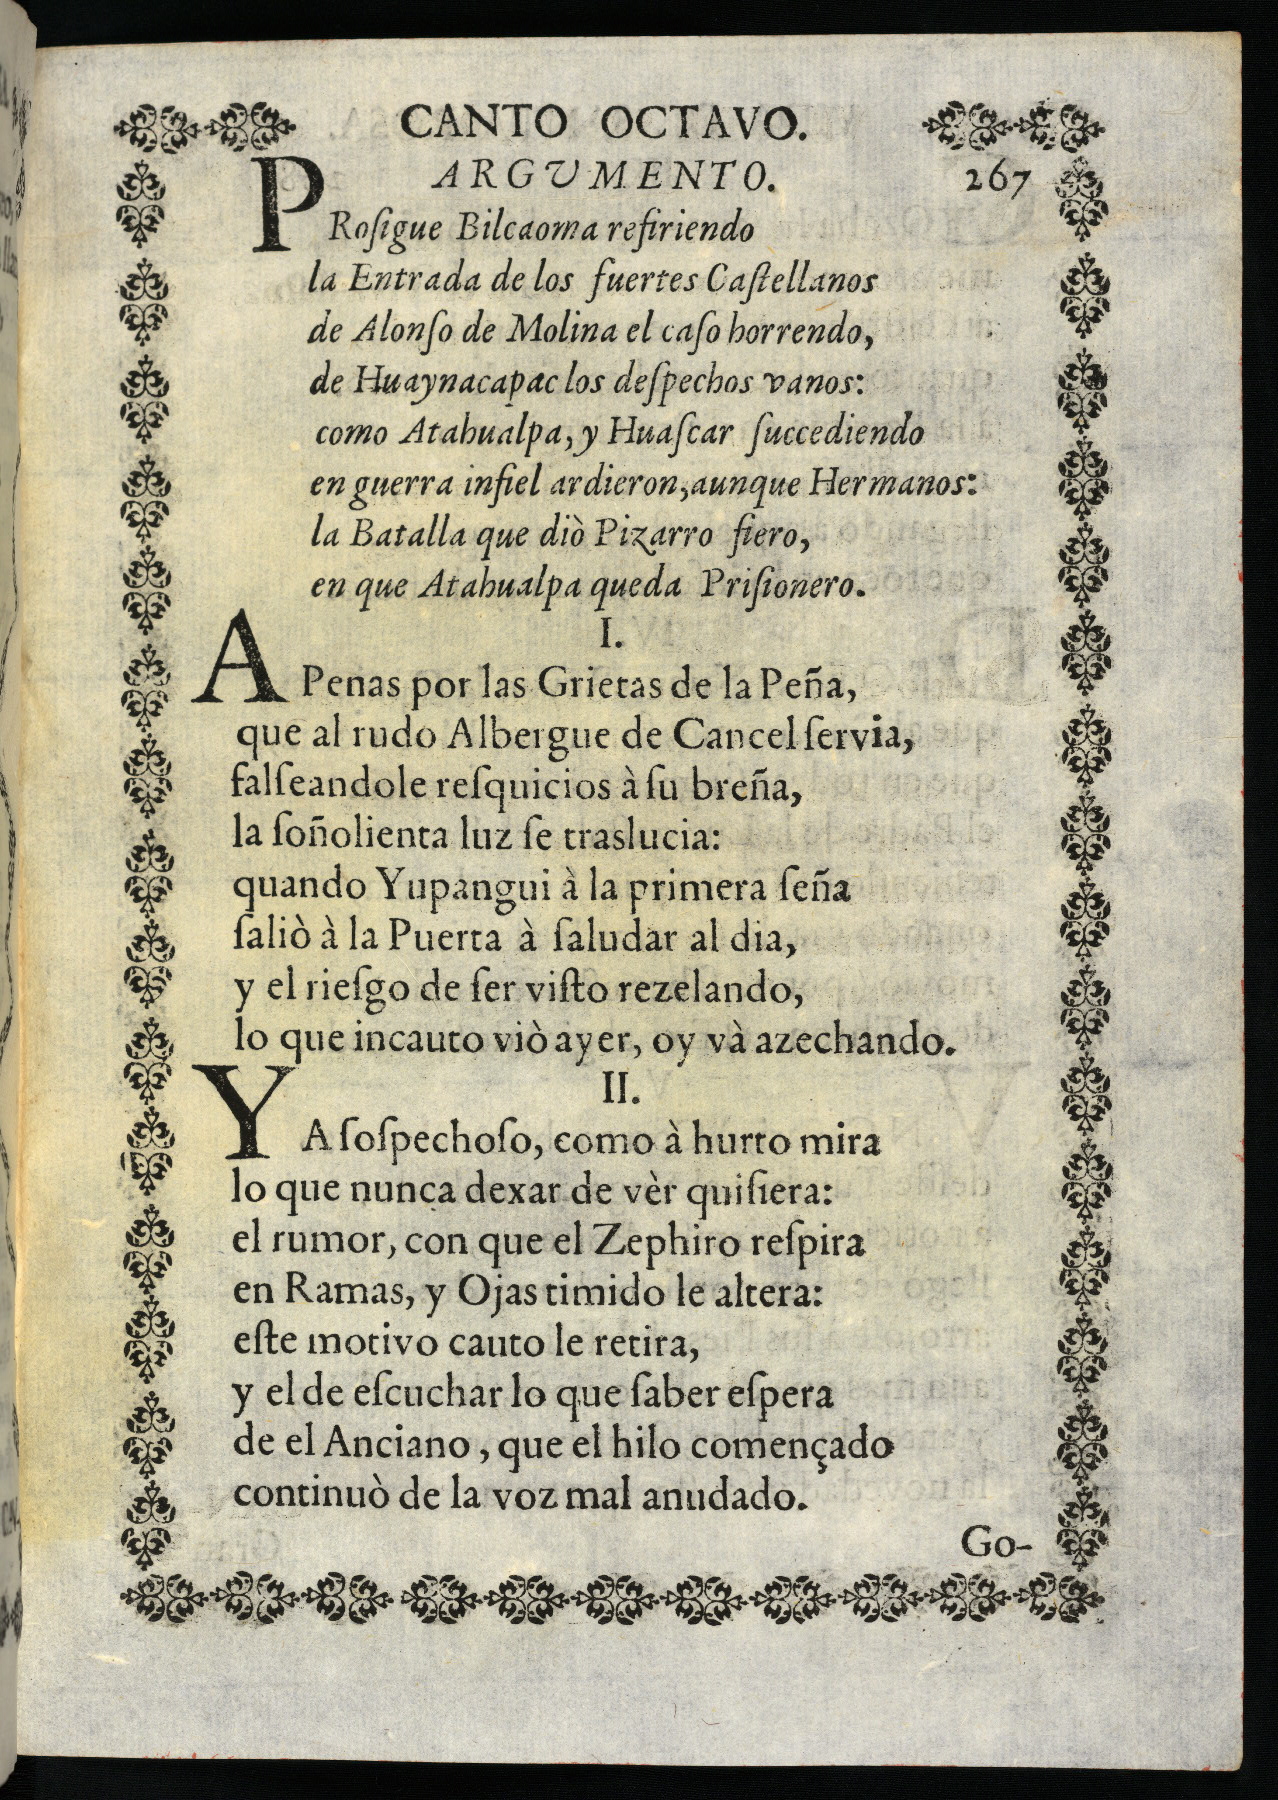 CANTO OCTAVO.
ARGVMENTO.
267
PRoſigue Bilcaoma refiriendo
la Entrada de los fuertes Caſtellanos
de Alonſo de Molina el caſo horrendo,
de Huaynacapac los deſpechos vanos:
como Atahualpa, y Huaſcar ſuccediendo
en guerra infiel ardieron, aunque Hermanos:
la Batalla que diò Pizarro fiero,
en que Atahualpa queda Priſionero.
I.
APenas por las Grietas de la Peña,
que al rudo Albergue de Cancel ſervia,
falſeandole reſquicios à ſu breña,
la ſoñolienta luz ſe traslucia:
quando Yupangui à la primera ſeña
ſaliò à la Puerta à ſaludar al dia,
y el rieſgo de ſer viſto rezelando,
lo que incauto viò ayer, oy và azechando.
II.
YA ſoſpechoſo, como à hurto mira
lo que nunca dexar de vèr quiſiera:
el rumor, con que el Zephiro reſpira
en Ramas, y Ojas timido le altera:
eſte motivo cauto le retira,
y el de eſcuchar lo que ſaber eſpera
de el Anciano, que el hilo començado
continuò de la voz mal anudado.
Go-